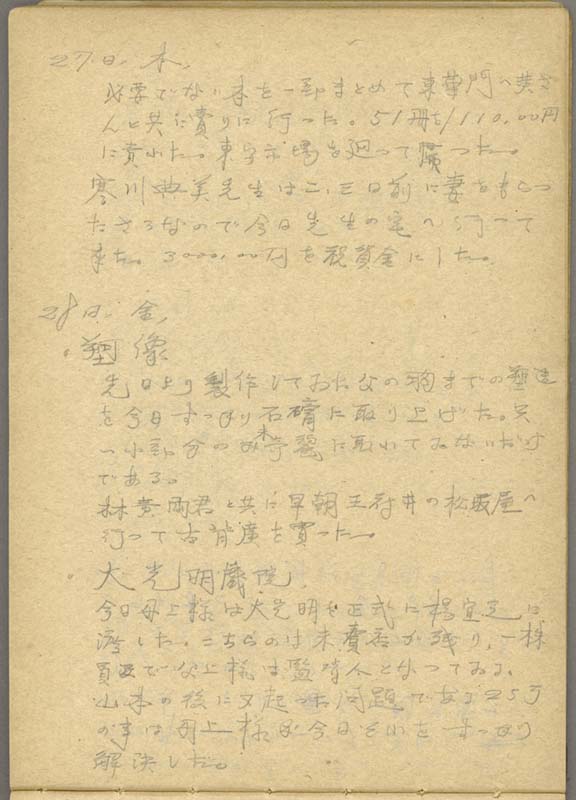 27日. 木.
必要でない本を一部まとめて東華門へ黄さ
んと共に賣りに行った。51冊を110.00円
に賣れた。東安市場を廻って帰った。
寒川典美先生は二、三日前に妻をもらっ
たさうなので今日先生の宅へ行って
来た。3000.00円を祝賀金にした。
28日. 金.
塑像
先日より製作しておたなの胸までの塑造
を今日すっかり石膏に取り上げた。只
一小部分のみ未完に取れてゐないだけ
である。
林黄両君と共に早朝王府井の松坂屋へ
行って古背廣を買った。
大光明戯院
今日母上様は大光明を正式に楊宜之に
渡した。こちらのは未賣否が残り、一株
員でなく母上様は監督人となってゐる。
山本の後に又起った問題である25万
の事は母上様が今日それをすっかり
解決した。